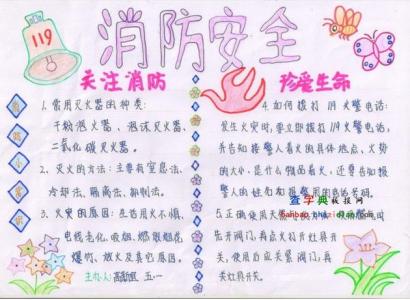 119
消防安全
关注消防
珍爱生命
1、常用灭火器的种类:
干粉泡火器、泡沫灭火器、
二氧化碳灭火器。
2、灭火的方法:主要有窒息法、
冷却法、隔离法、抑制法。
3、火灾的原因:生活用火不慎,
电线老化、吸烟、燃放烟花
爆竹、放火及其它原因。
主办人:
五一
4.如何拨打119火警电话:
发生火灾时,要立即拨打119火警电话,
并告知接警人着火的具体地点、火势
的大小,是什么物品着火,还要告知报
警人的姓名和报警用的电话号码。
5.正确使用天然
先开阀门,再点火的灶具开
关,使用后应关紧阀门,再
关灶具开关。
查字典 板报网
banbao.chazidian.com